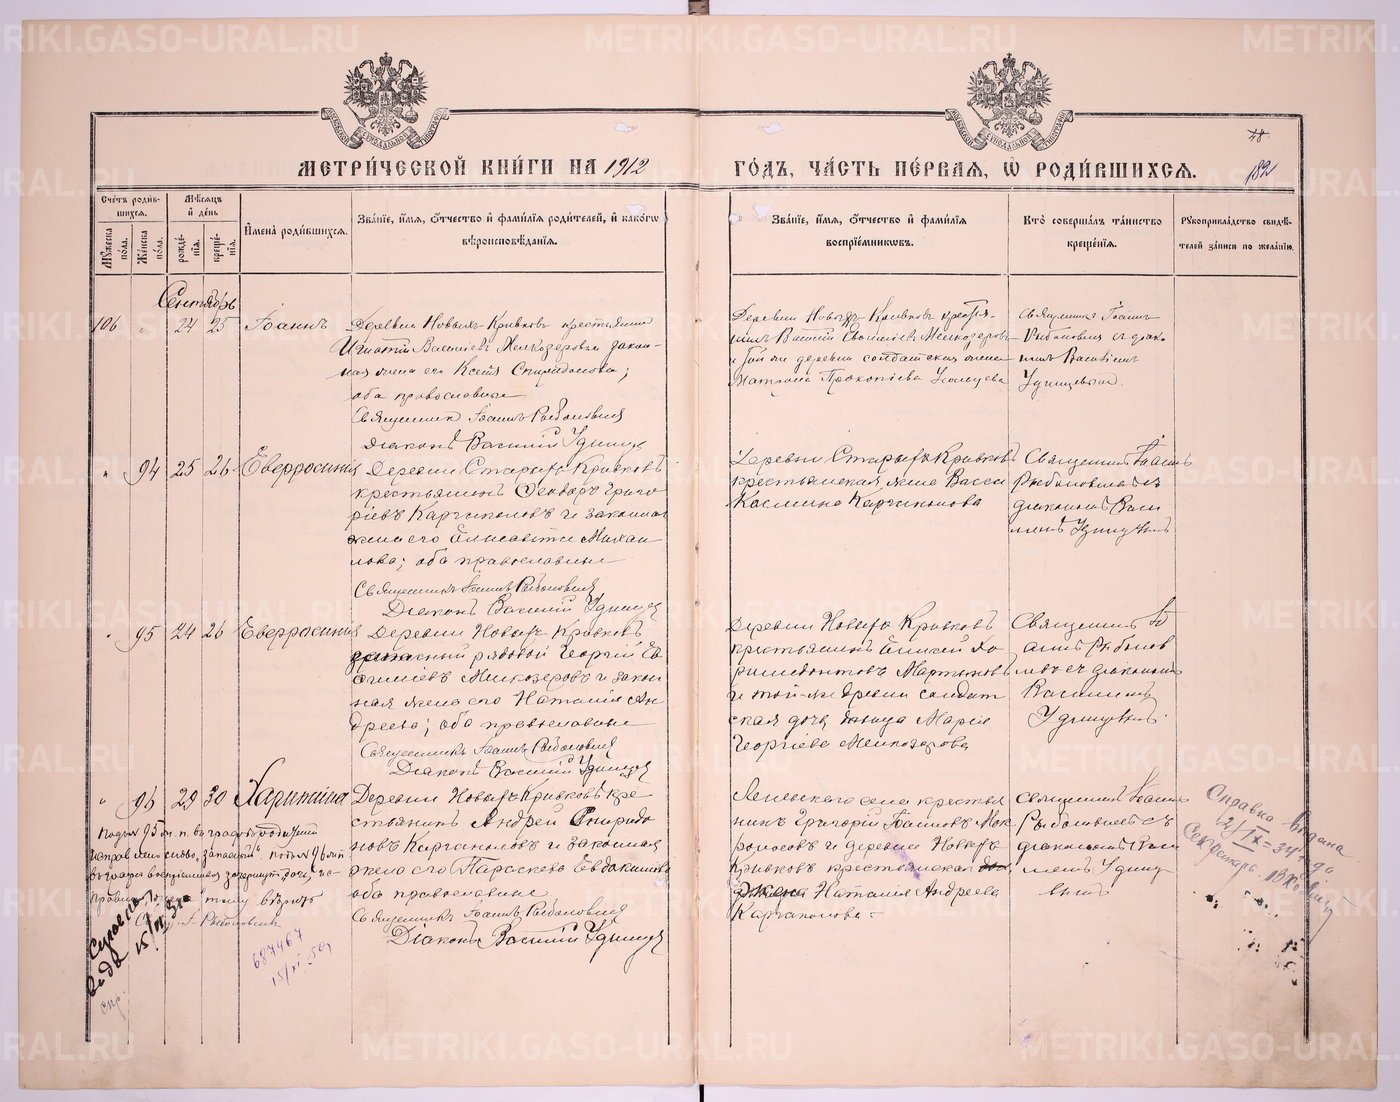 МЕТРИ́ЧЕСКОЙ КНИ́ГИ НА 1912
ГО́ДЪ, ЧА́СТЬ ПЕ́РВАЯ, Ѡ РОДИ́ВШИХСЯ.
182
Сче́тъ роди́в-
шихся.
Му́жеска по́ла.
Же́нска по́ла.
Мѣ́сяцъ
и҆ де́нь
рожде́-
нїѧ.
креще́-
нїѧ.
И҆мена̀ роди́вшихся.
Зва́нїе, и҆́мя, ѻ҆́тчество и҆ фами́лїя роди́телей, и҆ како́гѡ
вѣроисповѣ́данїя.
Зва́нїе, и҆́мя, ѻ҆́тчество и҆ фами́лїя
воспрїе́мникѡвъ.
Кто̀ соверша́лъ та́инство
креще́нїя.
Рꙋкоприкла́дство свидѣ́-
телей за́писи по жела́нїю.
Сентябрь
106 " 24 25 Іоаннъ
Деревни Новыхъ Кривковъ крестьянинъ
Игнатій Васильевъ Мелкозеровъ и закон-
ная жена его Ксенія Спиридонова;
оба православные
Священникъ Іоаннъ Рыболовлевъ
Діаконъ Василій Удинцевъ
Деревни Новыхъ Кривковъ крестья-
нинъ Василій Мелкозеровъ
и той же деревни солдатская жена
Матрона Прокопіева Усольцева
Священникъ Іоаннъ
Рыболовлевъ съ діако-
номъ Василіемъ
Удинцевымъ.
" 94 25 26 Евфросинія
Деревни Старыхъ Кривковъ
крестьянинъ Ѳеодоръ Григо-
ріевъ Каргаполовъ и законная
жена его Елисавета Михаи-
лова; оба православные
Священникъ Іоаннъ Рыболовлевъ
Діаконъ Василій Удинцевъ
Деревни Старыхъ Кривковъ
крестьянская жена Васса
Касмина Каргаполова
Священникъ Іоаннъ
Рыболовлевъ съ
діакономъ Васи-
ліемъ Удинцевымъ
" 95 24 26 Евфросинія
Деревни Новыхъ Кривковъ
запасный рядовой Георгій Ва-
силіевъ Мелкозеровъ и закон-
ная жена его Наталія Ан-
дреева; оба православные
Священникъ Іоаннъ Рыболовлевъ
Діаконъ Василій Удинцевъ
Деревни Новыхъ Кривковъ
крестьянинъ Елисей
Мартьяновъ
и той-же деревни солдат-
ская дочь дѣвица Марія
Георгіева Мелкозерова
Священникъ Іо-
аннъ Рыболов-
левъ съ діакономъ
Василіемъ
Удинцевымъ.
" 96 29 30 Харитина
Деревни Новыхъ Кривковъ кре-
стьянинъ Андрей Спиридо-
новъ Каргаполовъ и законная
жена его Параскева Евдокимова
оба православные
Священникъ Іоаннъ Рыболовлевъ
Діаконъ Василій Удинцевъ
села крестья-
нинъ Григорій Іоанновъ Мок-
роносовъ и деревни Новыхъ
Кривковъ крестьянская
жена Наталія Андреева
Каргаполова
Священникъ Іоаннъ
Рыболовлевъ съ
діакономъ Васи-
ліемъ Удинце-
вымъ
Подъ № 95 ж. п. въ графѣ о родителяхъ
исправленному слово „запасный“. подъ № 96
въ графѣ о воспріемникахъ зачеркнуто „дочь“,
вѣрить
Свящ. І. Рыболовлевъ
687467
15/XI-50 г
спр.
Справка выдана
12/IX = 34 года
Секретарь